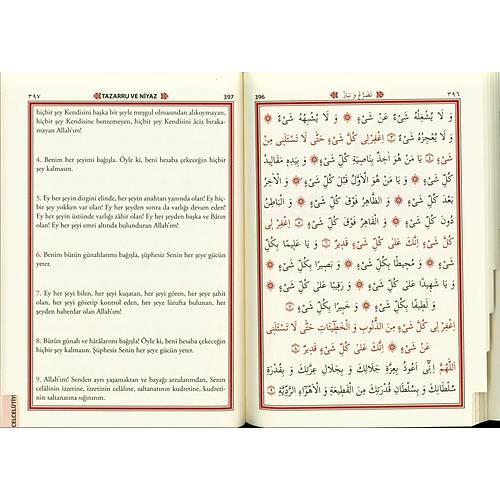 ٣٩٧ TAZARRU VE NİYAZ 397
hiçbir şey Kendisini başka bir şeyle meşgul olmasından alıkoymayan,
hiçbir şey Kendisine benzemeyen, hiçbir şey Kendisini âciz bıraka-
mayan Allah'ım!
4. Benim her şeyimi bağışla. Öyle ki, beni hesaba çekeceğin hiçbir
şey kalmasın.
5. Ey her şeyin dizgini elinde, her şeyin anahtarı yanında olan! Ey hiç-
bir şey yokken var olan! Ey her şeyden sonra da varlığı devam eden!
Ey her şeyin üstünde varlığı zâhir olan! Ey her şeyden başka ve Bâtın
olan! Ey her şeyi emri altında bulunduran Allah'ım!
6. Benim bütün günahlarımı bağışla, şüphesiz Senin her şeye gücün
yeter.
7. Ey her şeyi bilen, her şeyi kuşatan, her şeyi gören, her şeye şahit
olan, her şeyi gözetip kontrol eden, her şeye lütufta bulunan, her
şeyden haberdar olan Allah'ım!
8. Bütün günah ve hâtâlarımı bağışla! Öyle ki, beni hesaba çekeceğin
hiçbir şey kalmasın. Şüphesiz Senin her şeye gücün yeter.
9. Allah'ım! Senden ayrı yaşamaktan ve bayağı arzularımdan, Senin
celâlinin izzetine, izzetinin celâline, saltanatının kudretine, kudreti-
nin saltanatına sığınırım.
CELCELÛTİYE
396 تَضَرُّعْ وَ نِيَازْ ٣٩٦
وَ لَا يُشْغِلُهُ شَيْءٌ عَنْ شَيْءٍ وَ لَا يُشْبِهُهُ شَيْءٌ
وَ لَا يُعْجِزُهُ شَيْءٌ اِغْفِرْ لِى كُلَّ شَيْءٍ حَتَّى لَا تَسْئَلَنِى عَنْ
شَيْءٍ يَا مَنْ هُوَ اٰخِذٌ بِنَاصِيَةِ كُلِّ شَيْءٍ وَ بِيَدِهِ مَقَالِيدُ
كُلِّ شَيْءٍ وَ يَا مَنْ هُوَ الْاَوَّلُ قَبْلَ كُلِّ شَيْءٍ وَ الْاٰخِرُ
بَعْدَ كُلِّ شَيْءٍ وَ الظَّاهِرُ فَوْقَ كُلِّ شَيْءٍ وَ الْبَاطِنُ
دُونَ كُلِّ شَيْءٍ وَ الْقَاهِرُ فَوْقَ كُلِّ شَيْءٍ اِغْفِرْ لِى
كُلَّ شَيْءٍ اِنَّكَ عَلٰى كُلِّ شَيْءٍ قَدِيرٌ وَ يَا عَلِيمًا بِكُلِّ
شَيْءٍ وَ مُحِيطًا بِكُلِّ شَيْءٍ وَ بَصِيرًا بِكُلِّ شَيْءٍ
وَ يَا شَهِيدًا عَلٰى كُلِّ شَيْءٍ وَ رَقِيبًا عَلٰى كُلِّ شَيْءٍ
وَ لَطِيفًا بِكُلِّ شَيْءٍ وَ خَبِيرًا بِكُلِّ شَيْءٍ
اِغْفِرْ لِى كُلَّ شَيْءٍ مِنَ الذُّنُوبِ وَ الْخَطِيئَاتِ حَتَّى لَا تَسْئَلَنِى
عَنْ شَيْءٍ اِنَّكَ عَلٰى كُلِّ شَيْءٍ قَدِيرٌ
اَللّٰهُمَّ اِنِّى اَعُوذُ بِعِزَّةِ جَلَالِكَ وَ بِجَلَالِ عِزَّتِكَ وَ بِقُدْرَةِ
سُلْطَانِكَ وَ بِسُلْطَانِ قُدْرَتِكَ مِنَ الْقَطِيعَةِ وَ الْاَهْوَاءِ الرَّدِيَّةِ